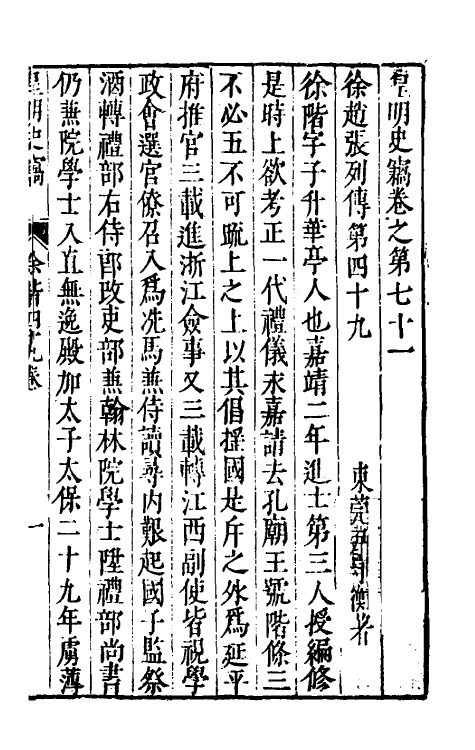 皇明史竊卷之第七十一
徐趙張列傳第四十九
東莞尹守衡著
徐階字子升華亭人也嘉靖二年進士第三人授編修
是時上欲考正一代禮儀永嘉請去孔廟王號階條三
不必五不可疏上之上以其倡搖國是斥之外爲延平
府推官三載進浙江僉事又三載轉江西副使皆視學
政會選官僚召入爲洗馬兼侍讀尋内艱起國子監祭
酒轉禮部右侍郎改吏部兼翰林院學士陞禮部尚書
仍兼院學士入直無逸殿加太子太保二十九年虜薄
皇明史竊
徐階四十九卷
一